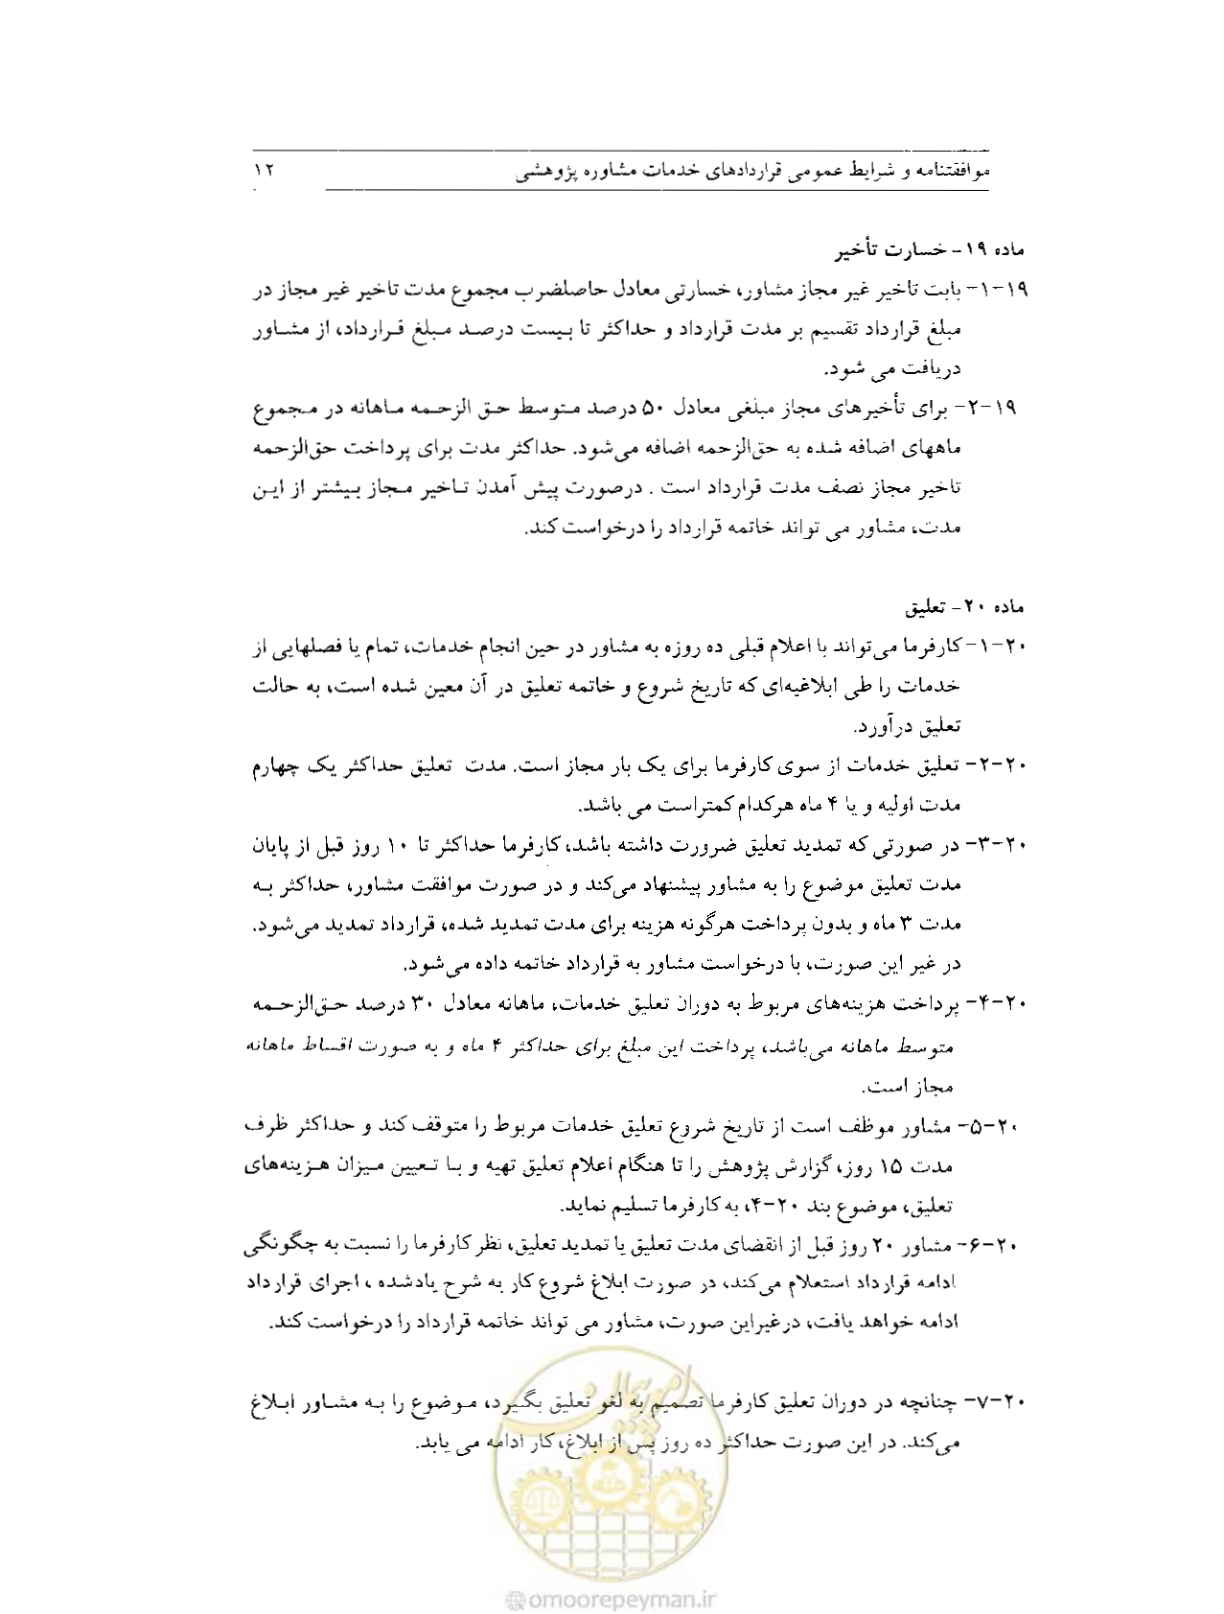 موافقتنامه و شرایط عمومی قراردادهای خدمات مشاوره پژوهشی ۱۲
ماده ۱۹- خسارت تأخیر
۱۹-۱- بابت تاخیر غیر مجاز مشاور، خسارتی معادل حاصلضرب مجموع مدت تاخیر غیر مجاز در
مبلغ قرارداد تقسیم بر مدت قرارداد و حداکثر تا بیست درصد مبلغ قرارداد، از مشاور
دریافت می شود.
۱۹-۲- برای تأخیرهای مجاز مبلغی معادل ۵۰ درصد متوسط حق الزحمه ماهانه در مجموع
ماههای اضافه شده به حق‌الزحمه اضافه می‌شود. حداکثر مدت برای پرداخت حق‌الزحمه
تاخیر مجاز نصف مدت قرارداد است . درصورت پیش آمدن تاخیر مجاز بیشتر از این
مدت، مشاور می تواند خاتمه قرارداد را درخواست کند.
ماده ۲۰- تعلیق
۲۰-۱- کارفرما می‌تواند با اعلام قبلی ده روزه به مشاور در حین انجام خدمات، تمام یا فصلهایی از
خدمات را طی ابلاغیه‌ای که تاریخ شروع و خاتمه تعلیق در آن معین شده است، به حالت
تعلیق درآورد.
۲۰-۲- تعلیق خدمات از سوی کارفرما برای یک بار مجاز است. مدت تعلیق حداکثر یک چهارم
مدت اولیه و یا ۴ ماه هرکدام کمتراست می باشد.
۲۰-۳- در صورتی که تمدید تعلیق ضرورت داشته باشد، کارفرما حداکثر تا ۱۰ روز قبل از پایان
مدت تعلیق موضوع را به مشاور پیشنهاد می‌کند و در صورت موافقت مشاور، حداکثر به
مدت ۳ ماه و بدون پرداخت هرگونه هزینه برای مدت تمدید شده، قرارداد تمدید می‌شود.
در غیر این صورت، با درخواست مشاور به قرارداد خاتمه داده می‌شود.
۲۰-۴- پرداخت هزینه‌های مربوط به دوران تعلیق خدمات، ماهانه معادل ۳۰ درصد حق‌الزحمه
متوسط ماهانه می‌باشد، پرداخت این مبلغ برای حداکثر ۴ ماه و به صورت اقساط ماهانه
مجاز است.
۲۰-۵- مشاور موظف است از تاریخ شروع تعلیق خدمات مربوط را متوقف کند و حداکثر ظرف
مدت ۱۵ روز، گزارش پژوهش را تا هنگام اعلام تعلیق تهیه و با تعیین میزان هزینه‌های
تعلیق، موضوع بند ۲۰-۴، به کارفرما تسلیم نماید.
۲۰-۶- مشاور ۲۰ روز قبل از انقضای مدت تعلیق یا تمدید تعلیق، نظر کارفرما را نسبت به چگونگی
ادامه قرارداد استعلام می‌کند، در صورت ابلاغ شروع کار به شرح یادشده ، اجرای قرارداد
ادامه خواهد یافت، درغیراین صورت، مشاور می تواند خاتمه قرارداد را درخواست کند.
۲۰-۷- چنانچه در دوران تعلیق کارفرما تصمیم به لغو تعلیق بگیرد، موضوع را به مشاور ابلاغ
می‌کند. در این صورت حداکثر ده روز پس از ابلاغ، کار ادامه می یابد.
امور پیمان
@omoorepeyman.ir